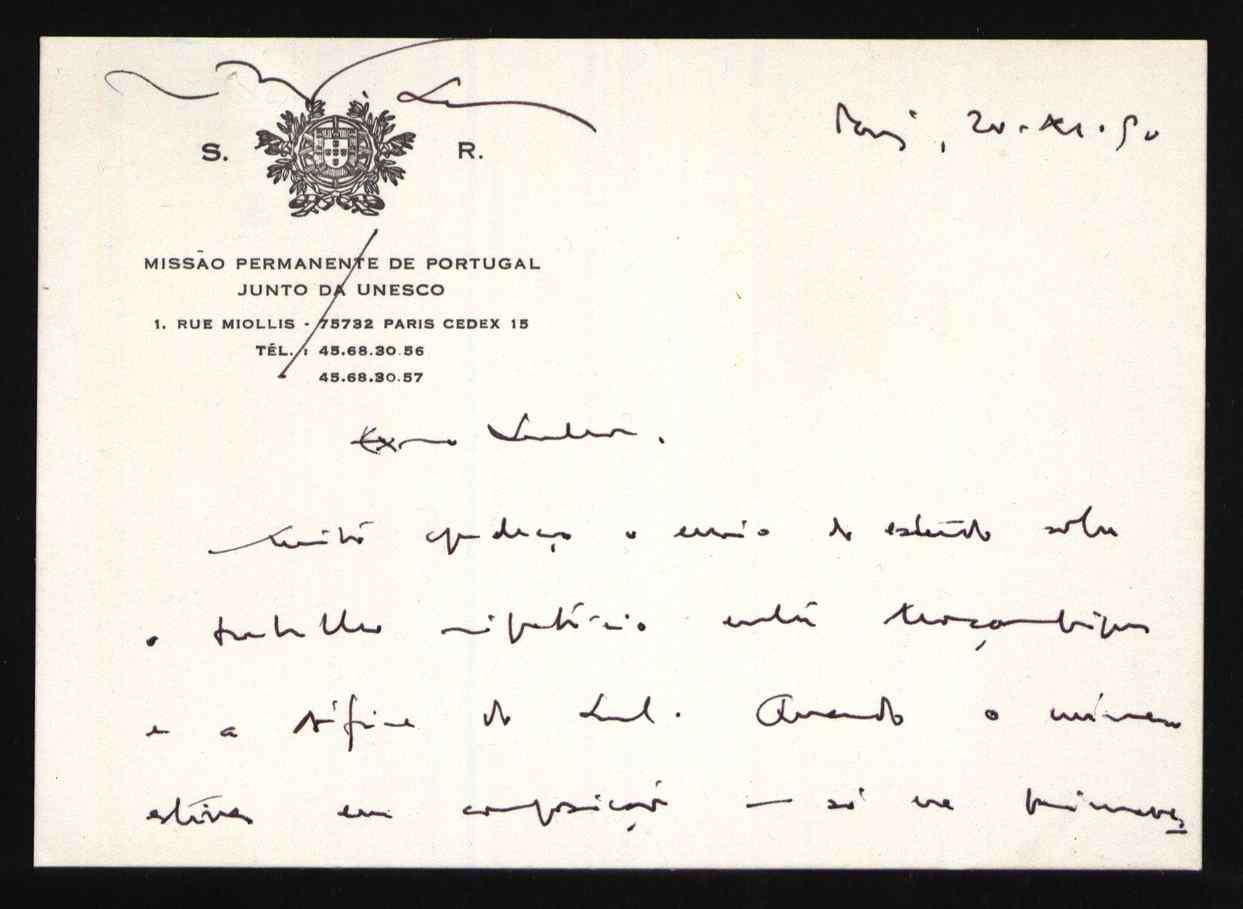 Paris, 20.XI.90
S. R.
MISSÃO PERMANENTE DE PORTUGAL
JUNTO DA UNESCO
1. RUE MIOLLIS - 75732 PARIS CEDEX 15
TÉL. : 45.68.30.56
45.68.30.57
Exmo Senhor.
Muito agradeço o envio do estudo sobre
o trabalho migratório entre Moçambique
e a África do Sul. Quando o número
estiver em composição — só na primavera